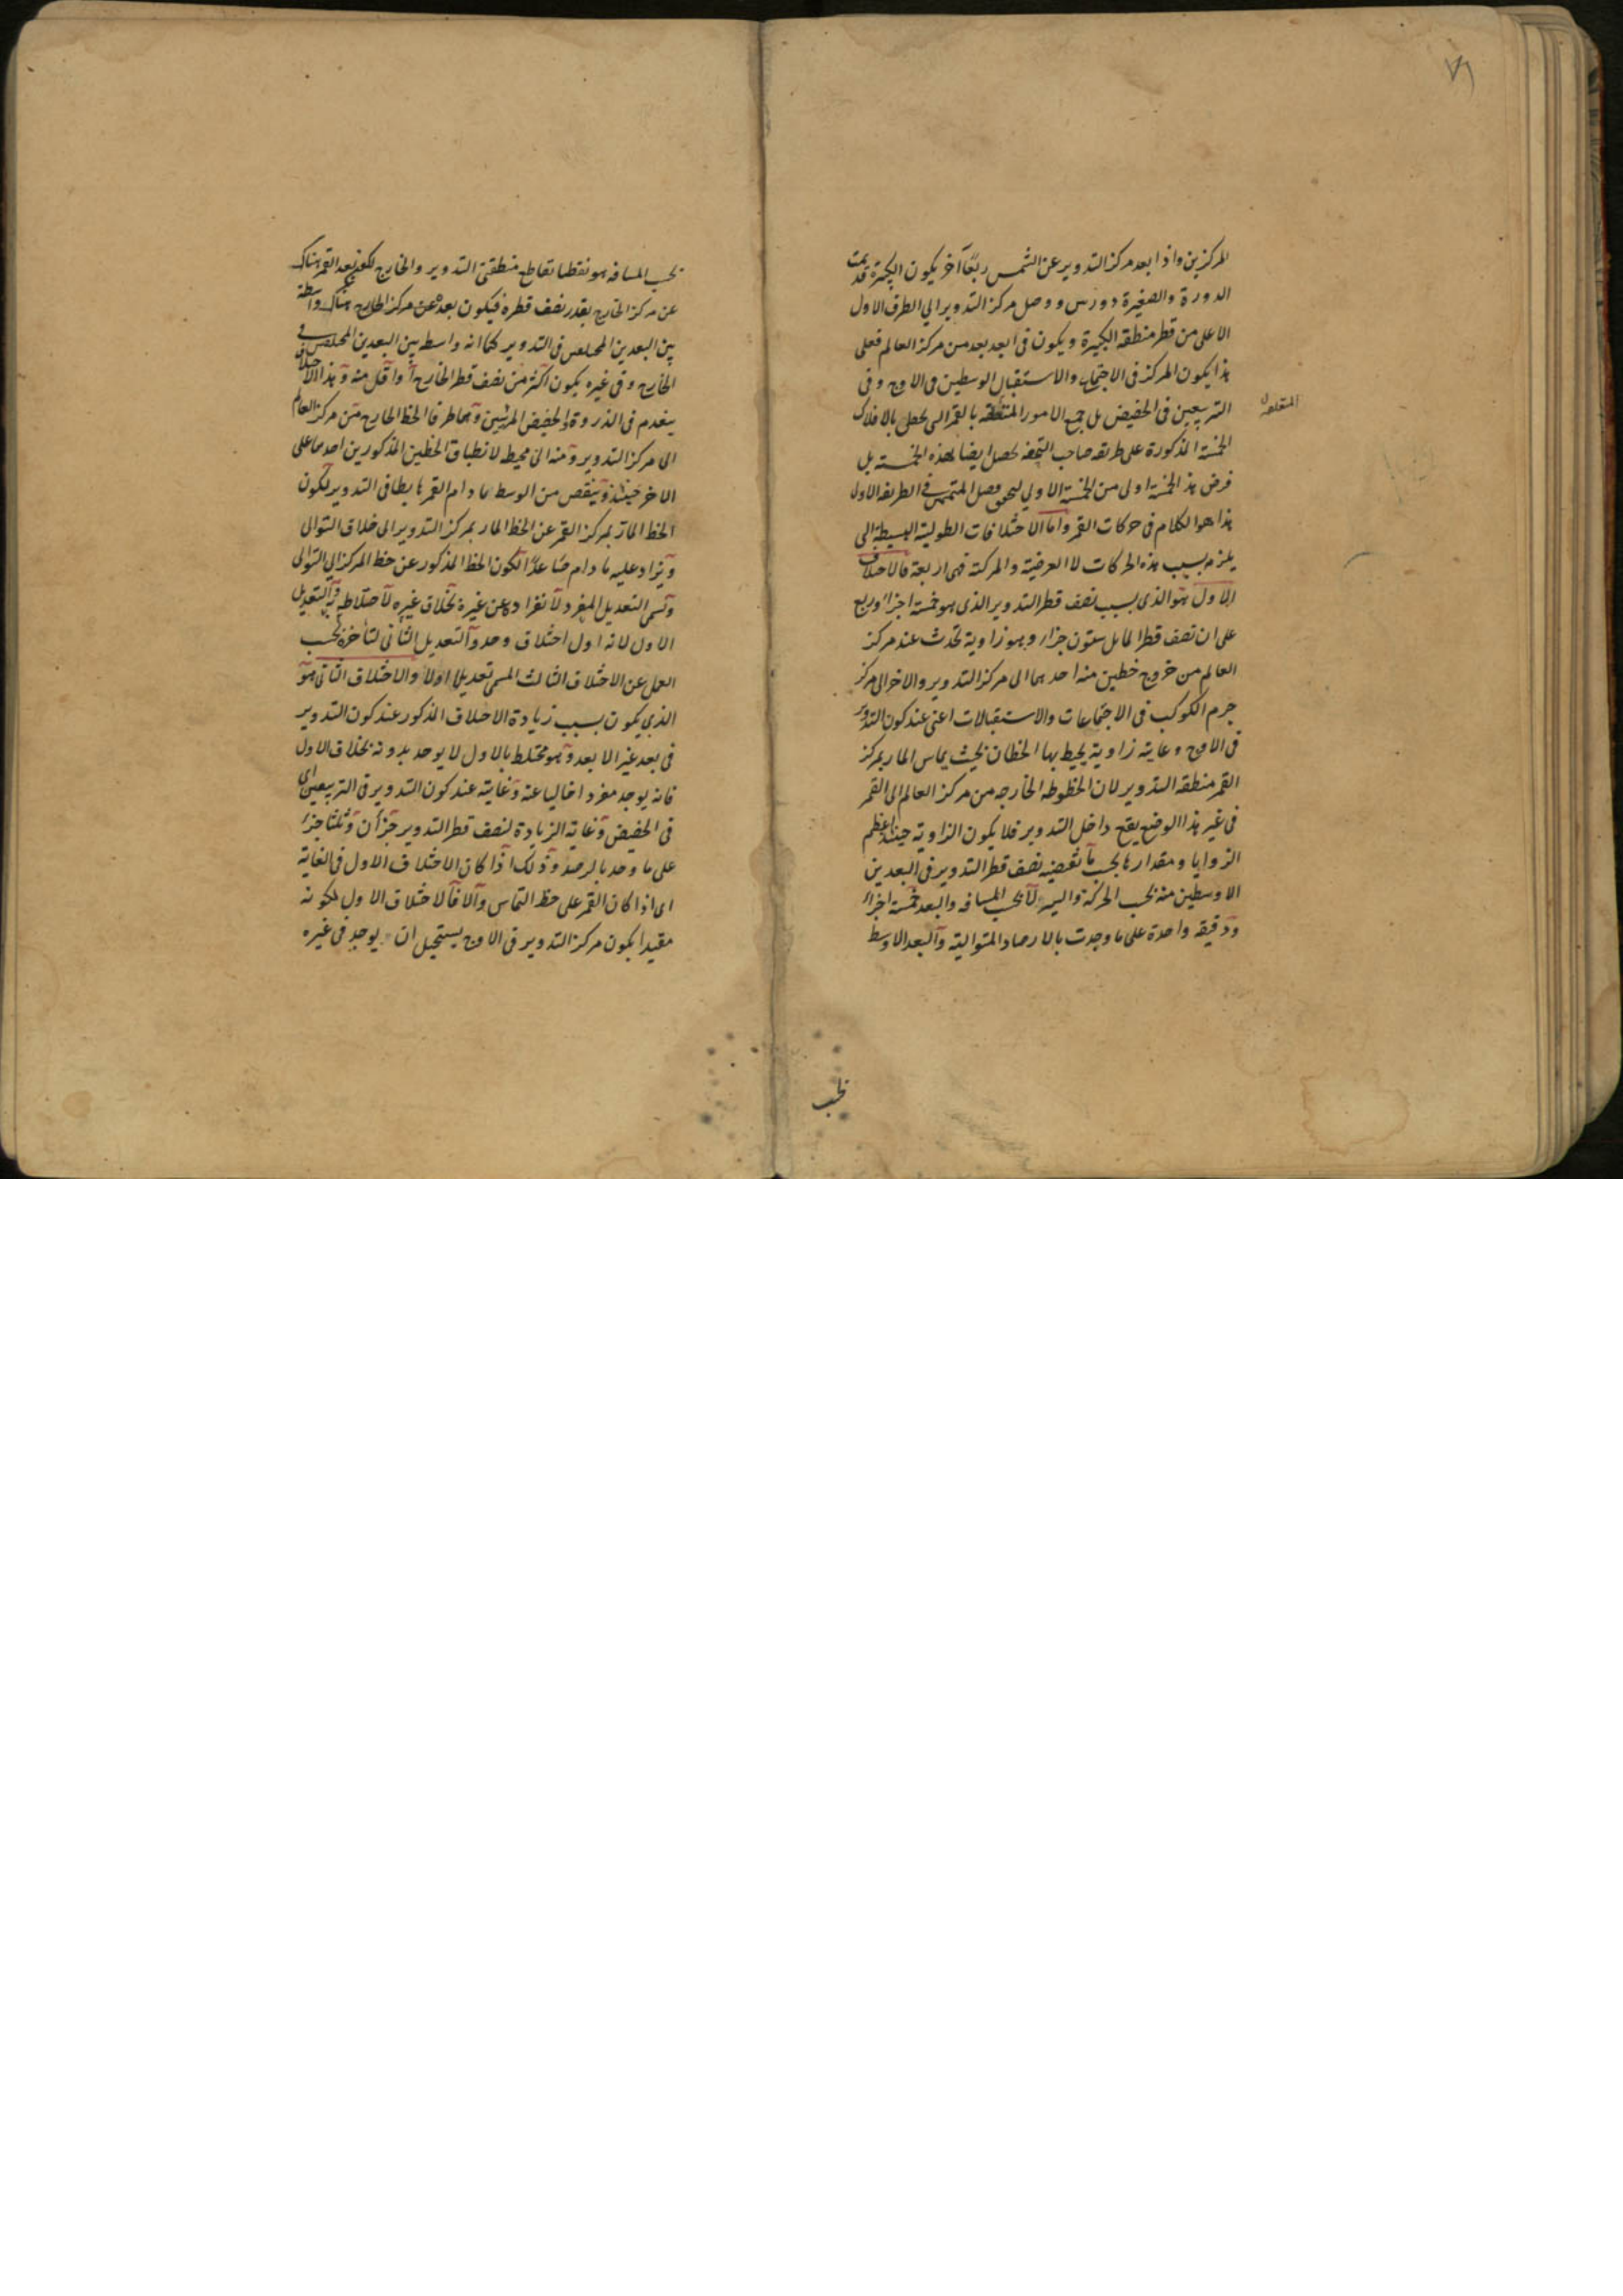 ٧٦
المركزين واذا بعد مركز التدوير عن الشمس ربعا آخر يكون الكبيرة قد تمت
الدورة والصغيرة دورتين ووصل مركز التدوير الي الطرف الاول
الاعلى من قطر منطقة الكبيرة ويكون في ابعد بعد من مركز العالم فعلى
هذا يكون المركز في الاجتماع والاستقبال الوسطين في الاوج وفي
التربيعين في الحضيض بل جميع الامور المتعلقة بالقمر التي تحصل بالافلاك
الخمسة المذكورة على طريقه صاحب التحفه تحصل ايضا بهذه الخمسة بل
فرض هذه الخمسة اولى من الخمسة الاولي فصل المتمس في الطريقه الاول
هذا هو الكلام في حركات القمر واما الاختلافات الطولية البسيطة التي
يلزم بسبب هذه الحركات لا العرضية والمركبة فهي اربعة فالاختلاف
الاول هو الذي بسبب نصف قطر التدوير الذي هو خمسة اجزاء وربع
على ان نصف قطر المايل ستون جزءا وهو زاوية تحدث عند مركز
العالم من خروج خطين منه احدهما الى مركز التدوير والاخر الى مركز
جرم الكوكب في الاجتماعات والاستقبالات اعني عند كون التدوير
في الاوج وغايته زاوية يحيط بها الخطان بحيث يماس المار بمركز
القمر منطقة التدوير لان الخطوط الخارجه من مركز العالم الى القمر
في غير هذا الوضع يقع داخل التدوير فلا يكون الزاوية حينئذ اعظم
الزوايا ومقدارها بحسب ما يقتضيه نصف قطر التدوير في البعدين
الاوسطين منه بحسب الحركة والسير لا بحسب المسافه والبعد خمسة اجزاء
ودقيقة واحدة على ما وجدت بالارصاد المتوالية والبعد الاوسط
بحسب
بحسب المسافه هو نقطتا تقاطع منطقتي التدوير والخارج لكون بعد القمر هناك
عن مركز الخارج بقدر نصف قطره فيكون بعده عن مركز الخارج هناك واسطة
بين البعدين المختلفين في التدوير كما انه واسط بين البعدين المختلفين في
الخارج وفي غيره يكون اكثر من نصف قطر الخارج او اقل منه وهذا الاختلاف
ينعدم في الذروة والحضيض المرئيين وهما طرفا الخط الخارج من مركز العالم
الى مركز التدوير ومنه الى محيطه لانطباق الخطين المذكورين احدهما على
الاخر حينئذ وينقص من الوسط ما دام القمر هابطا في التدوير لكون
الخط المار بمركز القمر عن الخط المار بمركز التدوير الى خلاف التوالى
ويزاد عليه ما دام صاعدا لكون الخط المذكور عن خط المركز الي التوالى
وتسمى التعديل المفرد لانفراده عن غيره بخلاف غيره لاختلاطه به والتعديل
الاول لانه اول اختلاف وجد والتعديل الثاني لتاخره بحسب
العمل عن الاختلاف الثالث المسمى تعديلا اولا والاختلاف الثاني هو
الذي يكون بسبب زيادة الاختلاف المذكور عند كون التدوير
في بعد غير الابعد وهو مختلط بالاول لا يوجد بدونه بخلاف الاول
فانه يوجد مفردا خاليا عنه وغايته عند كون التدوير في التربيعين اي
في الحضيض وغاية الزيادة لنصف قطر التدوير جزآن وثلثا جزء
على ما وجد بالرصد وذلك اذا كان الاختلاف الاول في الغاية
اى اذا كان القمر على خط التماس والا فالاختلاف الاول لكونه
مقيدا بكون مركز التدوير في الاوج يستحيل ان يوجد في غيره